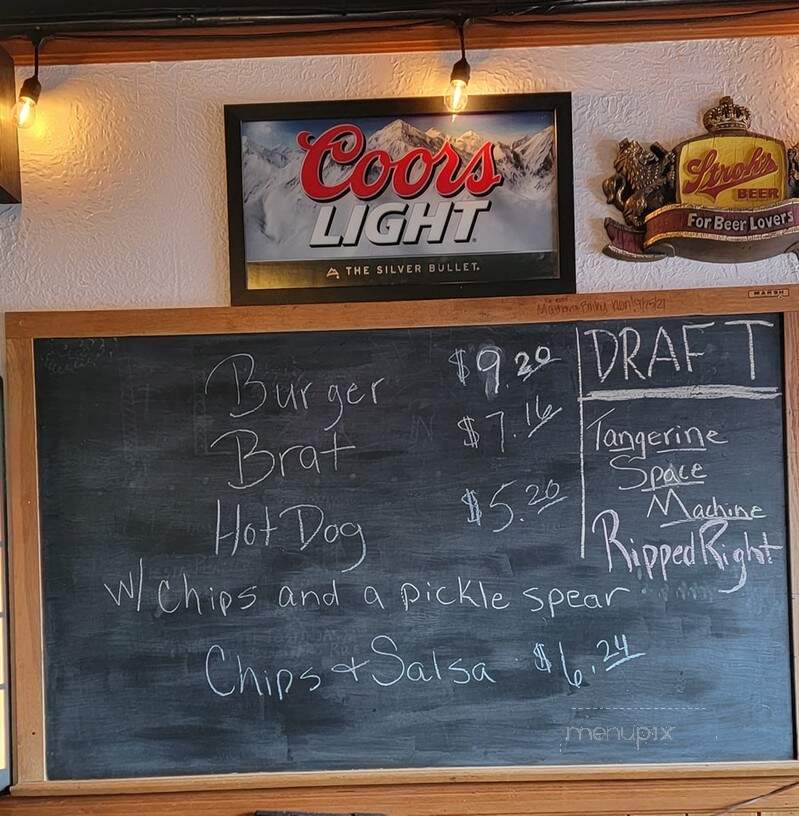 Coors
LIGHT
THE SILVER BULLET.
Stroh's
BEER
For Beer Lovers
MARSH
Burger $9.20
Brat $7.16
Hot Dog $5.20
w/ Chips and a pickle spear
Chips & Salsa $6.24
DRAFT
Tangerine
Space
Machine
Ripped Right
menupix